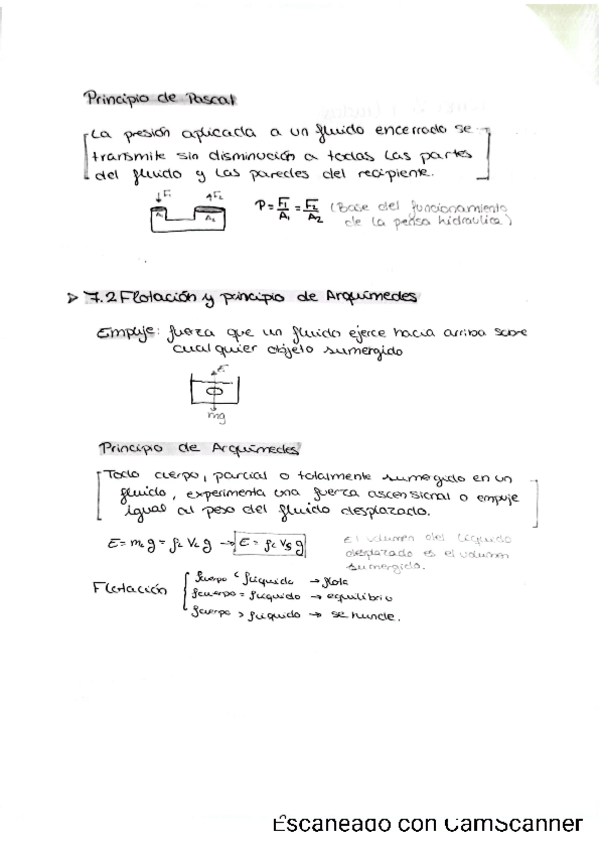 Principio de Pascal
La presión aplicada a un fluido encerrado se
transmite sin disminución a todas las partes
del fluido y las paredes del recipiente.
↓F₁ ↑F₂
A₁ A₂
P = F₁/A₁ = F₂/A₂ (Base del funcionamiento
de la pensa hidraulica)
▷ 7.2 Flotación y principio de Arquímedes
Empuje: fuerza que un fluido ejerce hacia arriba sobre
cualquier objeto sumergido
E
mg
Principio de Arquímedes
Todo cuerpo, parcial o totalmente sumergido en un
fluido, experimenta una fuerza ascensional o empuje
igual al peso del fluido desplazado.
E = m_L g = ρ_L V_L g → E = ρ_L V_S g
El volumen del líquido
desplazado es el volumen
sumergido.
Flotación
ρcuerpo < ρlíquido → flota
ρcuerpo = ρlíquido → equilibrio
ρcuerpo > ρlíquido → se hunde.
Escaneado con CamScanner